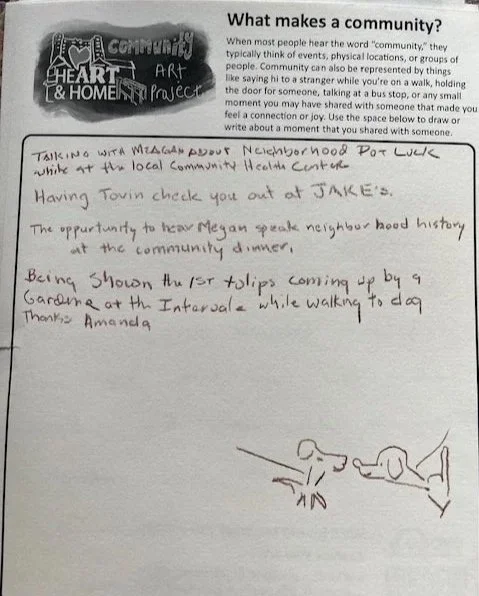 COMMUNITY
ART
Project
HEART
& HOME
What makes a community?
When most people hear the word "community," they
typically think of events, physical locations, or groups of
people. Community can also be represented by things
like saying hi to a stranger while you're on a walk, holding
the door for someone, talking at a bus stop, or any small
moment you may have shared with someone that made you
feel a connection or joy. Use the space below to draw or
write about a moment that you shared with someone.
TALKING WITH MEAGAN ABOUT Neighborhood POT LUCK
while at the local Community Health Center
Having Tovin check you out at JAKE's.
The oppurtunity to hear Megan speak neighbor hood history
at the community dinner.
Being Shown the 1ST tulips coming up by a
Gardener at the Intervale while walking to dog
Thanks Amanda